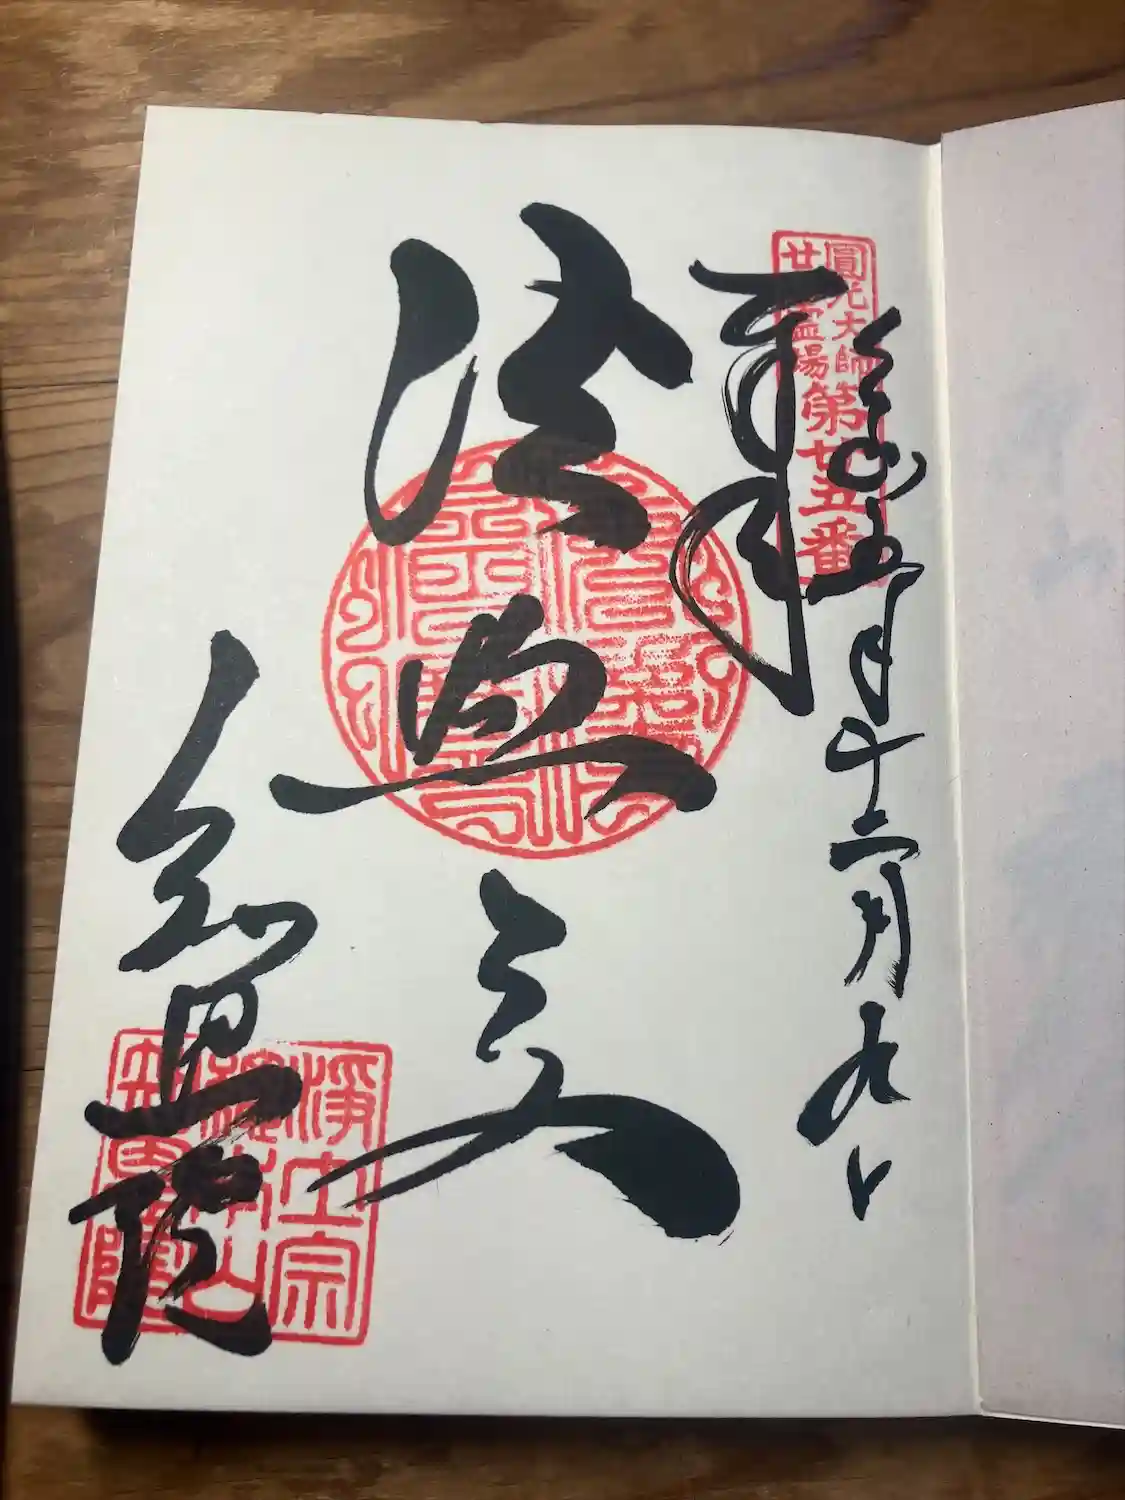 圓光大師
廿五霊場
第廿五番
令和五年十二月九日
奉拝
法然上人
知恩院
淨土宗
總本山
知恩院